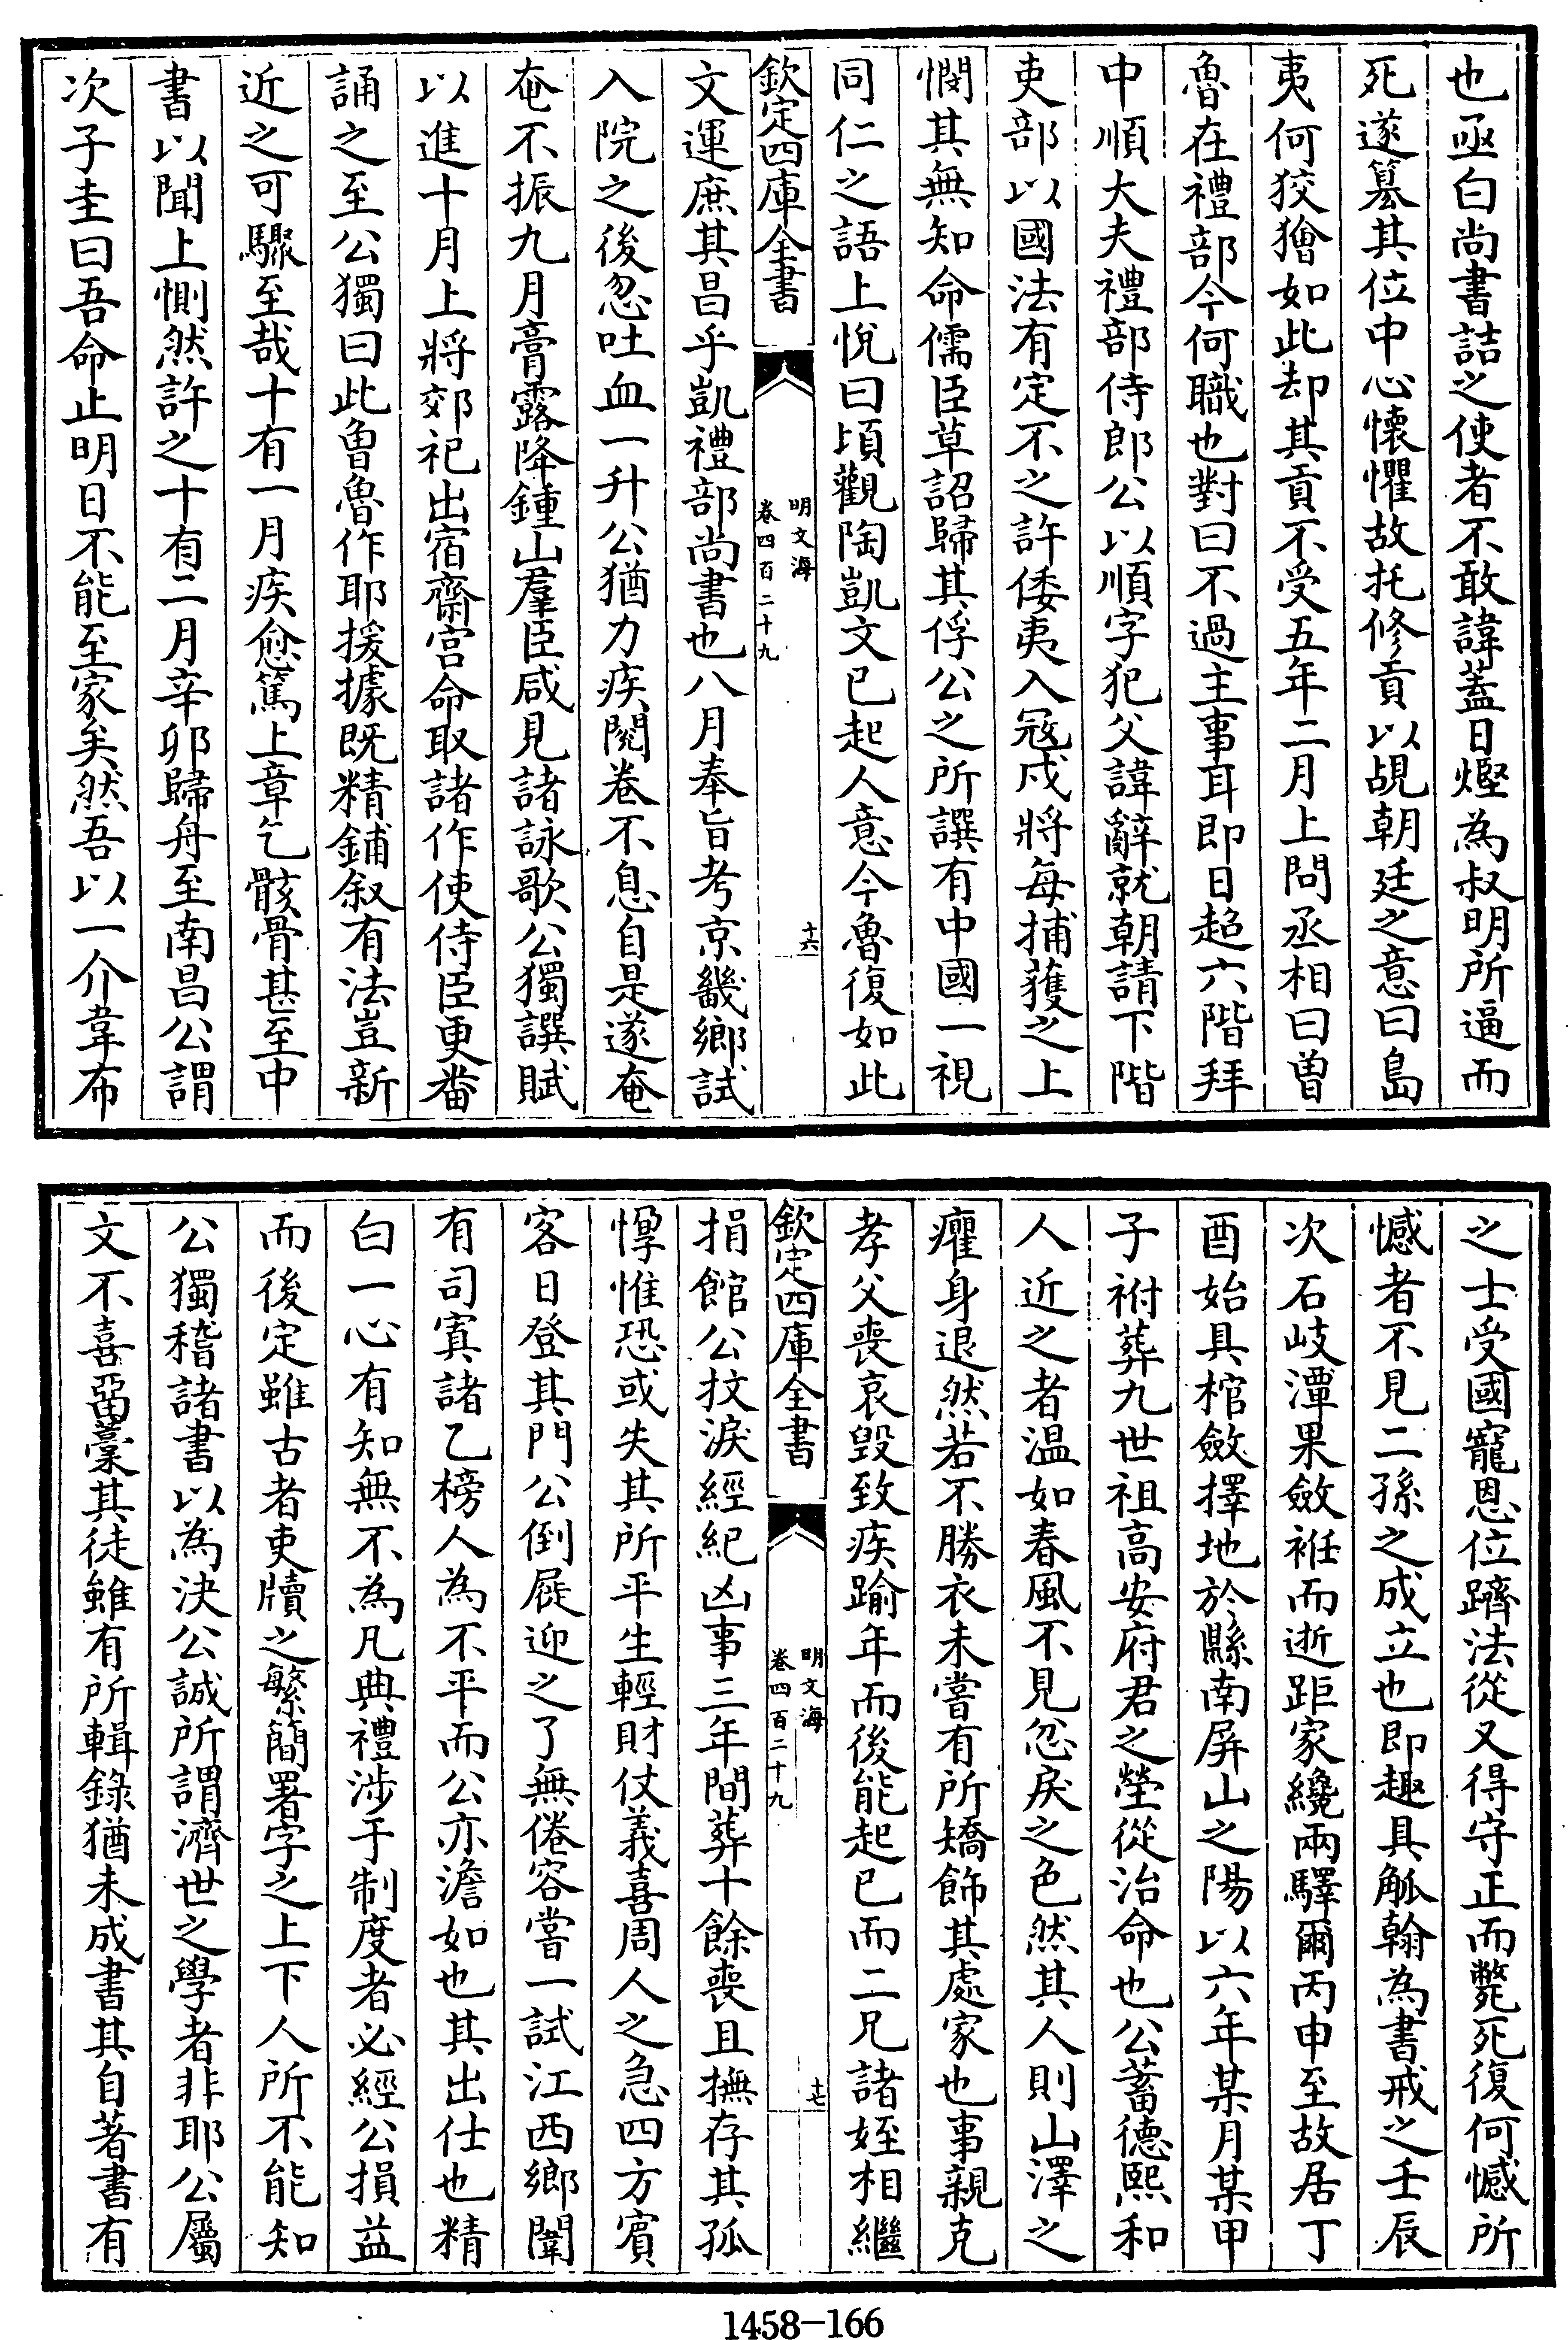 也亟白尚書詰之使者不敢諱蓋日熞為叔明所逼而
死遂簒其位中心懐懼故托修貢以覘朝廷之意曰島
夷何狡獪如此却其貢不受五年二月上問丞相曰曽
魯在禮部今何職也對曰不過主事耳即日超六階拜
中順大夫禮部侍郎公以順字犯父諱辭就朝請下階
吏部以國法有定不之許倭夷入冦戍將每捕獲之上
憫其無知命儒臣草詔歸其俘公之所譔有中國一視
同仁之語上悅曰頃觀陶凱文已起人意今魯復如此
欽定四庫全書
明文海
卷四百二十九
十六
文運庶其昌乎凱禮部尚書也八月奉旨考京畿鄉試
入院之後忽吐血一升公猶力疾閱卷不息自是遂奄
奄不振九月膏露降鍾山羣臣咸見諸詠歌公獨譔賦
以進十月上將郊祀出宿齋宫命取諸作使侍臣更畨
誦之至公獨曰此曽魯作耶援據既精鋪叙有法豈新
近之可驟至哉十有一月疾愈篤上章乞骸骨甚至中
書以聞上惻然許之十有二月辛卯歸舟至南昌公謂
次子圭曰吾命止明日不能至家矣然吾以一介韋布
之士受國寵恩位躋法從又得守正而斃死復何憾所
憾者不見二孫之成立也即趣具觚翰為書戒之壬辰
次石岐潭果斂袵而逝距家纔兩驛爾丙申至故居丁
酉始具棺斂擇地於縣南屏山之陽以六年某月某甲
子祔葬九世祖髙安府君之塋從治命也公蓄德熙和
人近之者温如春風不見忿戾之色然其人則山澤之
癯身退然若不勝衣未嘗有所矯飾其處家也事親克
孝父喪哀毁致疾踰年而後能起已而二兄諸姪相繼
欽定四庫全書
明文海
卷四百二十九
十七
捐館公抆淚經紀凶事三年間葬十餘喪且撫存其孤
惸惟恐或失其所平生輕財仗義喜周人之急四方賓
客日登其門公倒屣迎之了無倦容嘗一試江西鄉闈
有司寘諸乙榜人為不平而公亦澹如也其出仕也精
白一心有知無不為凡典禮涉于制度者必經公損益
而後定雖古者吏牘之繁簡署字之上下人所不能知
公獨稽諸書以為決公誠所謂濟世之學者非耶公屬
文不喜畱藁其徒雖有所輯錄猶未成書其自著書有
1458-166